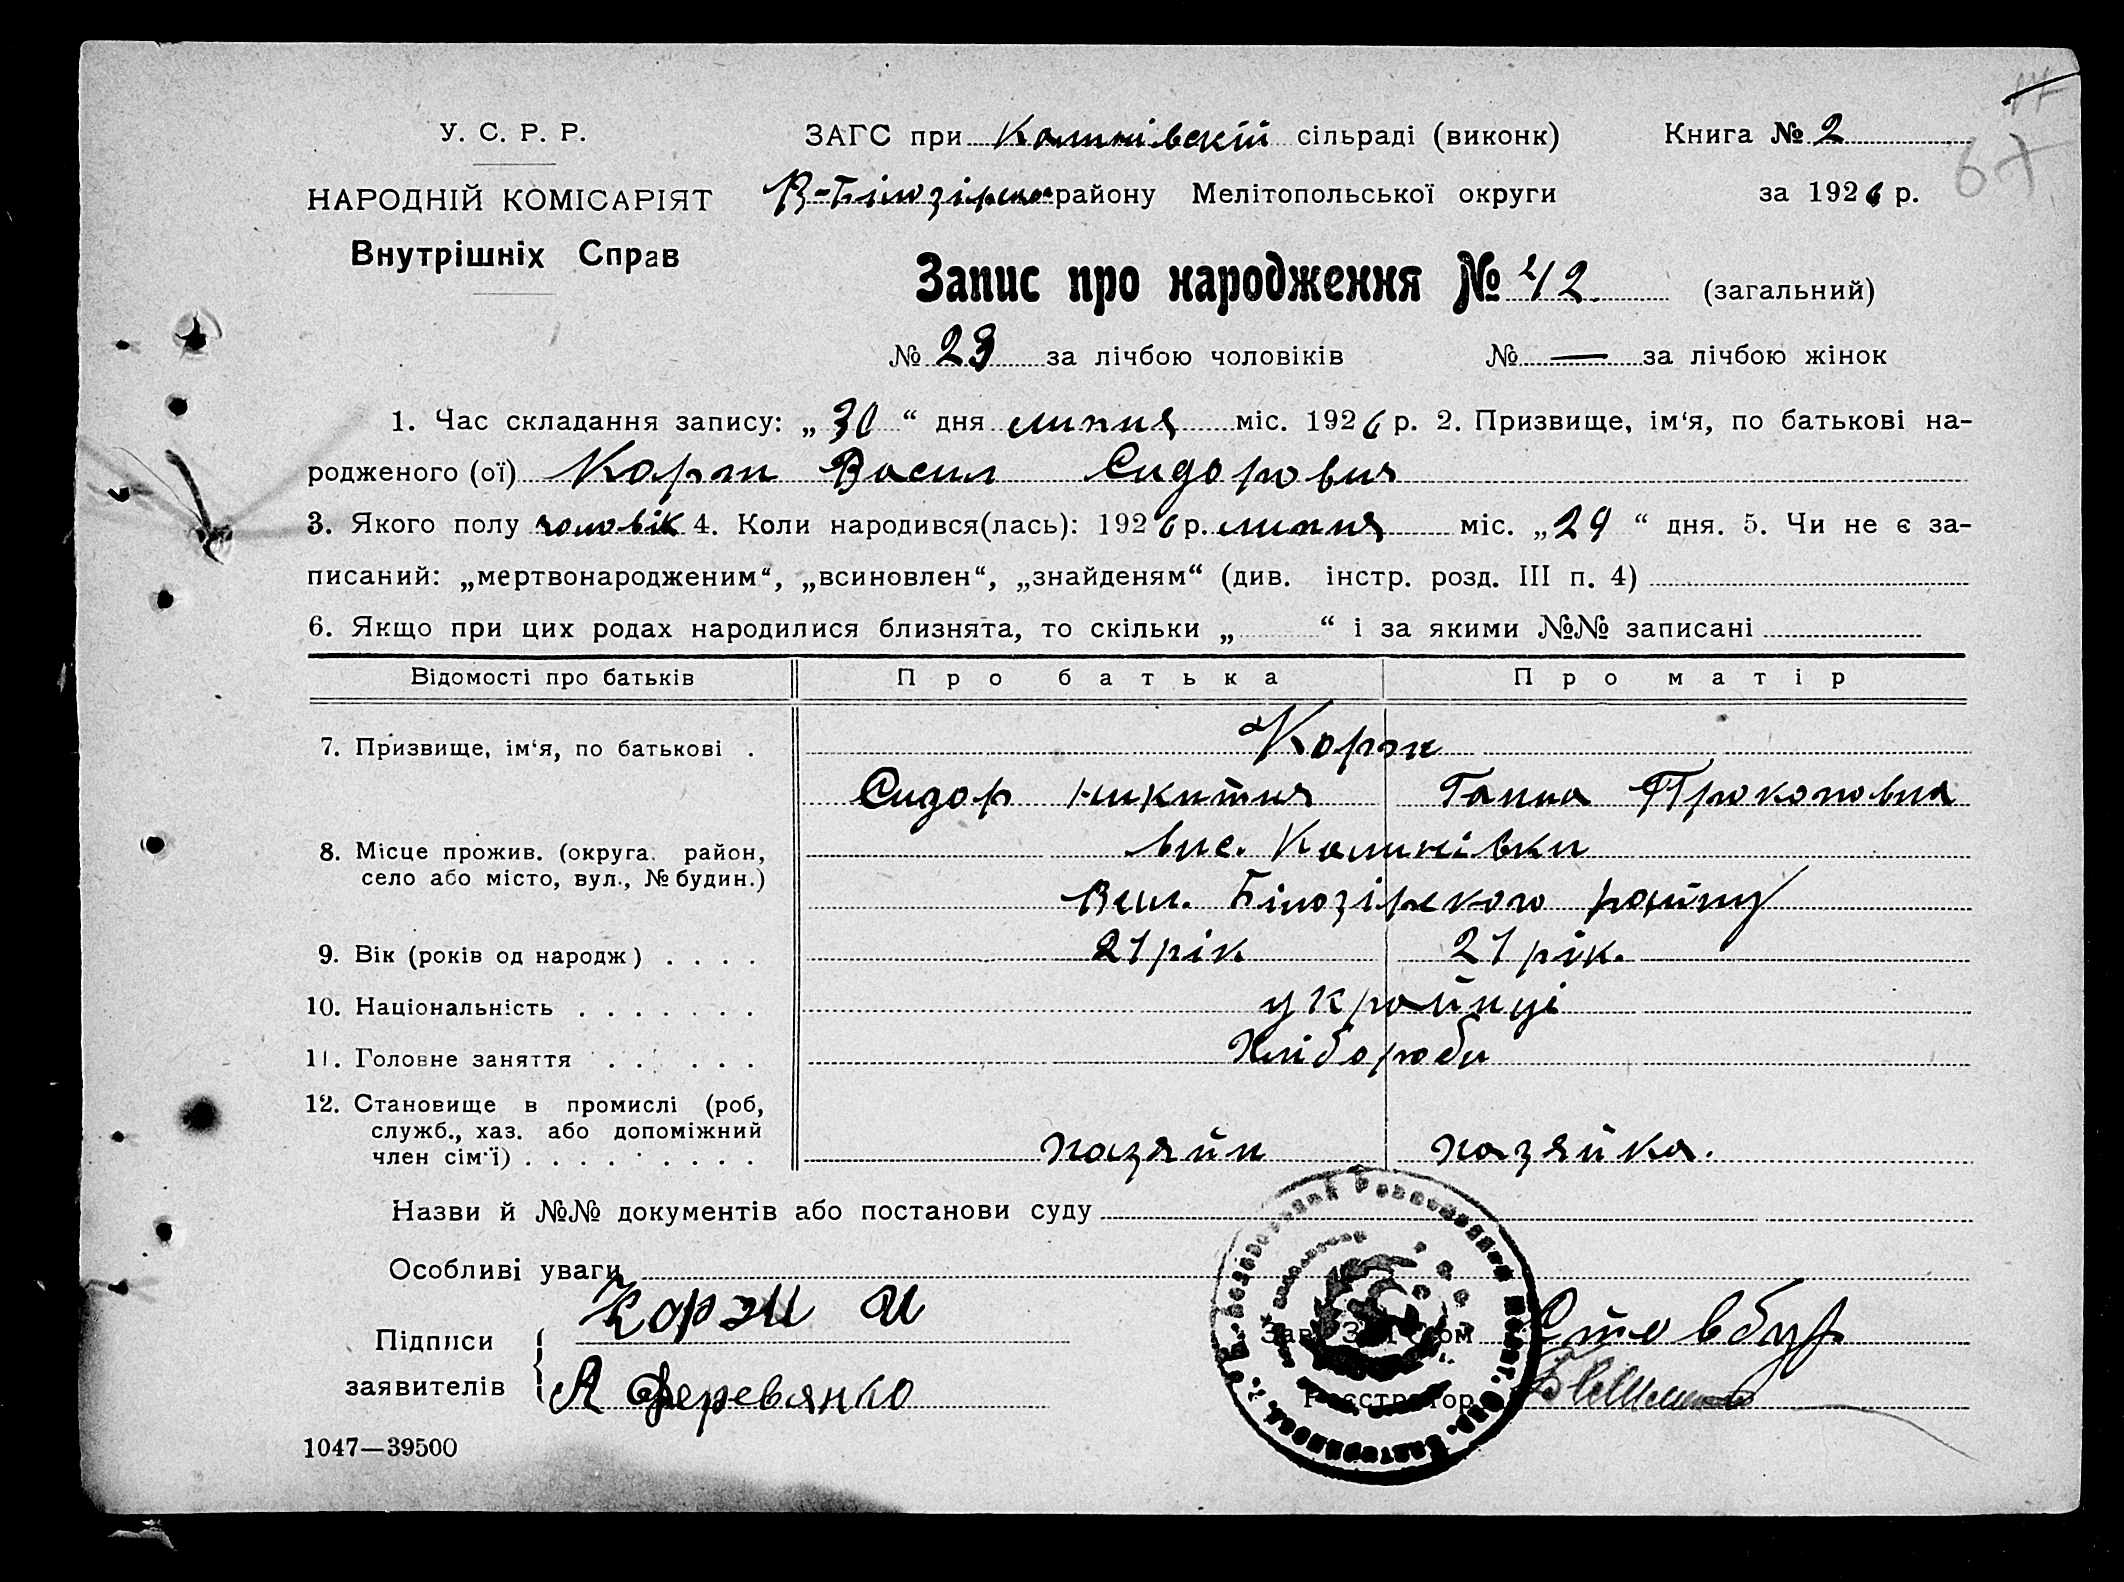 У. С. Р. Р.
НАРОДНІЙ КОМІСАРІЯТ
Внутрішніх Справ
ЗАГС при Калинівскій сільраді (виконк)
В-Білозірсько району Мелітопольської округи
Книга № 2
за 1926 р.
67
Запис про народження № 42. (загальний)
№ 23 за лічбою чоловіків № — за лічбою жінок
1. Час складання запису: „30“ дня липня міс. 1926 р. 2. Призвище, ім‘я, по батькові на-
родженого (ої) Корж Васил Сидорович
3. Якого полу чоловік 4. Коли народився(лась): 1926 р. липня міс. „29“ дня. 5. Чи не є за-
писаний: „мертвонародженим“, „всиновлен“, „знайденям“ (див. інстр. розд. III п. 4)
6. Якщо при цих родах народилися близнята, то скільки „ “ і за якими №№ записані
Відомості про батьків Про батька Про матір
7. Призвище, ім‘я, по батькові . Корж
Сидор Никитич Ганна Прокоповна
8. Місце прожив. (округа, район, село або місто, вул., № будин.) вис. Калинівки
Вел. Білозірского району
9. Вік (років од народж) . . . . 21 рік 21 рік.
10. Національність . . . . . . . українці
11. Головне заняття . . . . . . Хлібороби
12. Становище в промислі (роб,
служб., хаз. або допоміжний
член сім‘ї) . . . . . . . . . хазяйн хазяйка.
Назви й №№ документів або постанови суду
Особливі уваги
Підписи
заявителів
Корж
А Деревянко
Зав. ЗАГСом Стовбур
Реєстратор
1047—39500